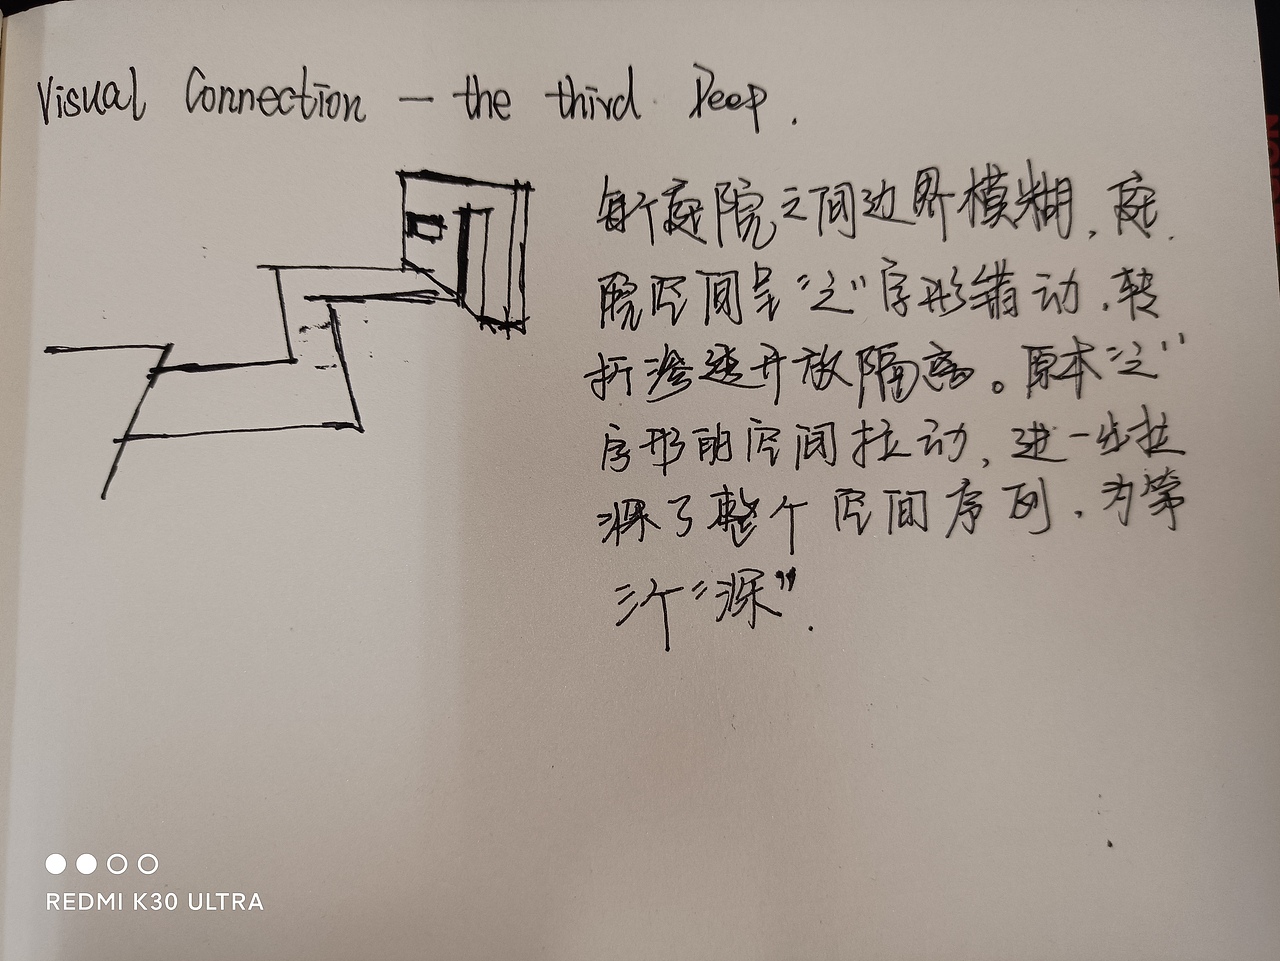 Visual Connection — the third Deep.
每个庭院之间边界模糊,庭
院空间呈“之”字形错动,转
折渗透开放隔离。原本“之”
字形的空间拉动,进一步拉
深了整个空间序列,为第
三个“深”.
REDMI K30 ULTRA